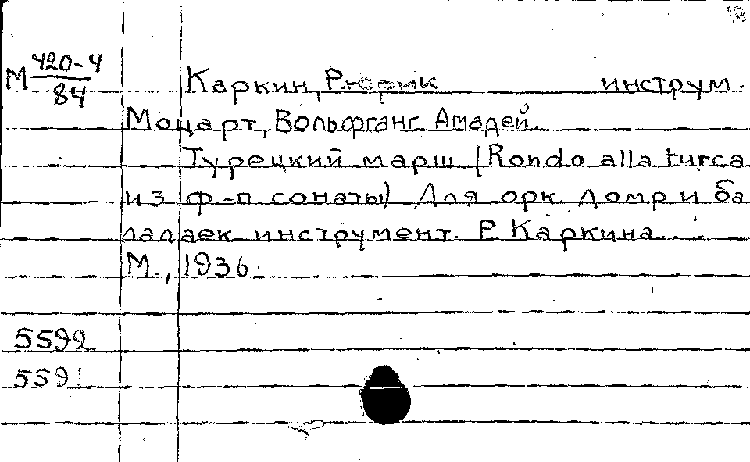 М 420-4
84
Каркин, Рюрик инструм.
Моцарт, Вольфганг Амадей.
Турецкий марш (Rondo alla turca
из ф-п сонаты) Для орк. домр и ба
лалаек инструмент. Р. Каркина.
М., 1936.
5599
5591